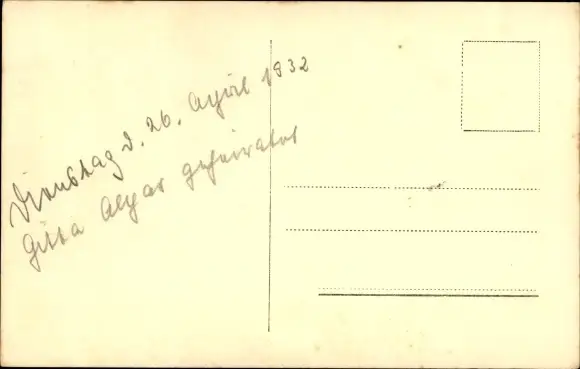 Dienstag d. 26. April 1932
Gitta Alpar geheiratet